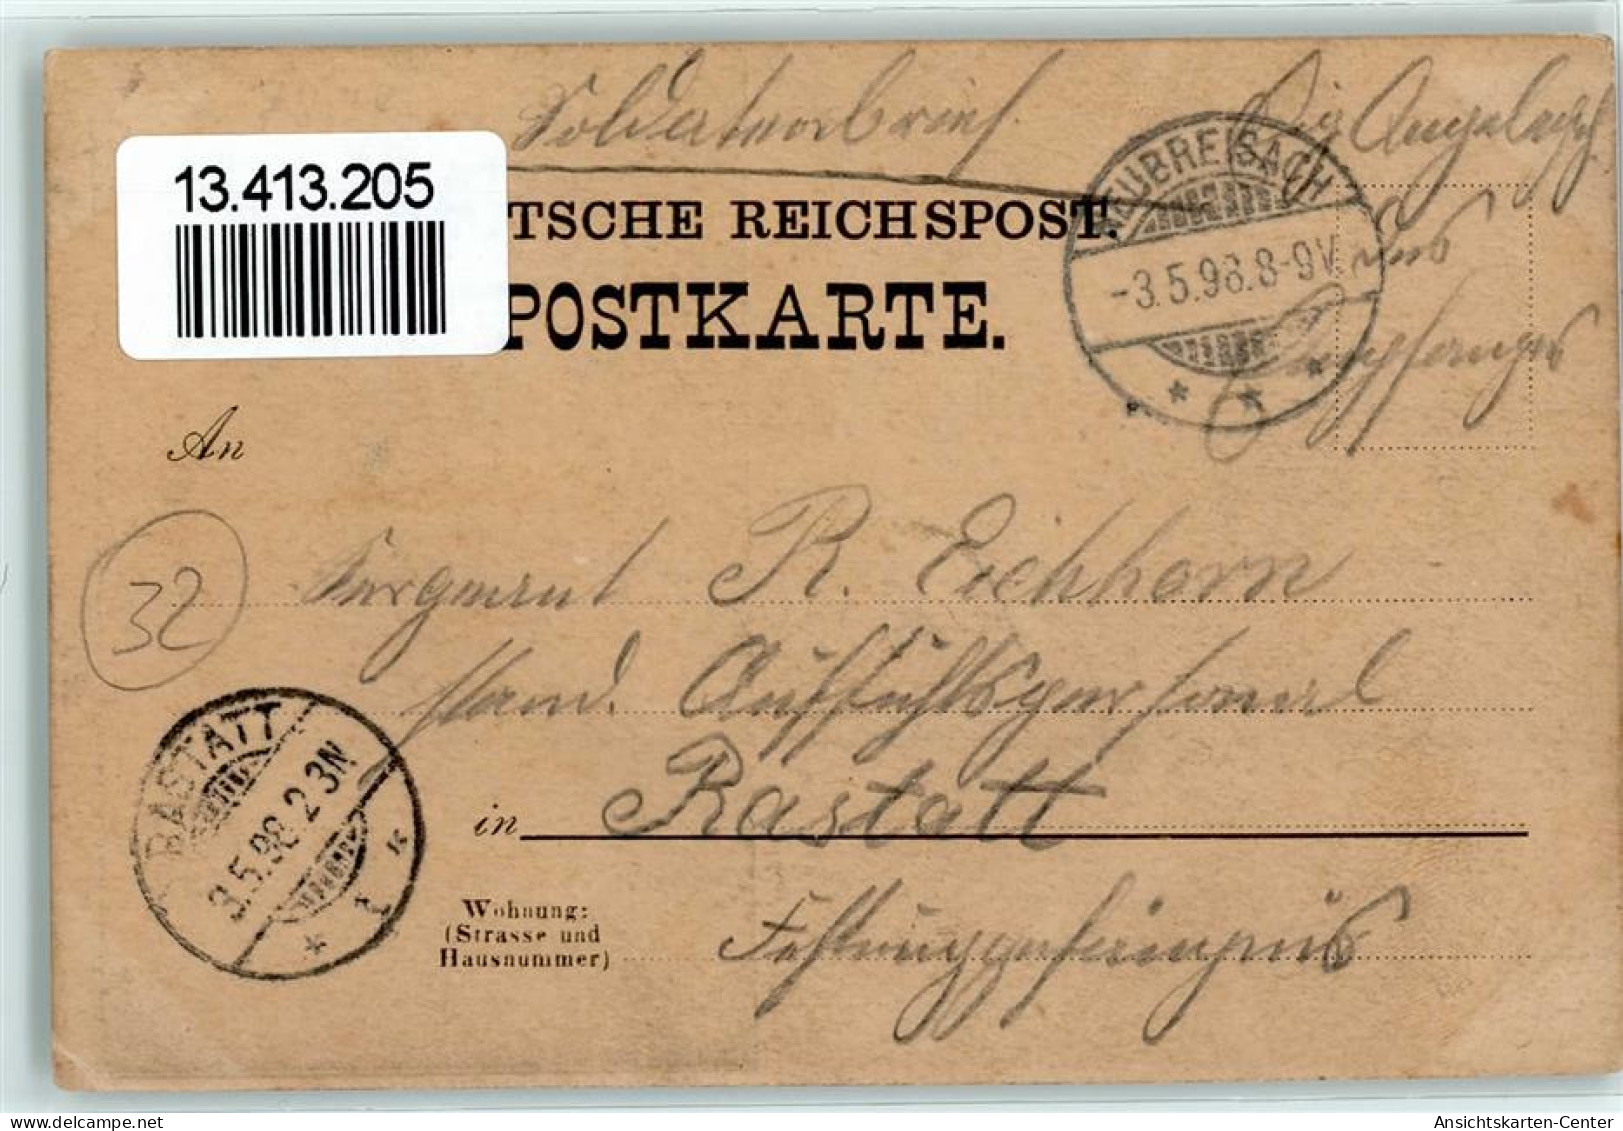 Soldatenbrief.
Die Angelegh.
des
Empfängers
13.413.205
TSCHE REICHSPOST.
POSTKARTE.
NEUBREISACH
-3.5.98.8-9V
An
32
Sergeant R. Eichhorn
Aufsichtspersonal
RASTATT
3.5.98 2-3N
in Rastatt
Wohnung:
(Strasse und
Hausnummer)
Festungsgefängnis
Ansichtskarten-Center